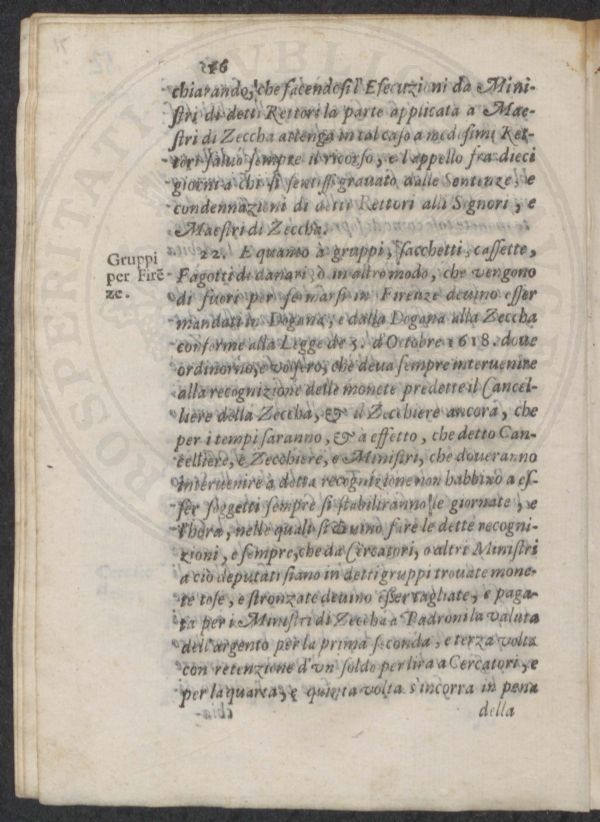 16
chiarando, che facendosi l'Esecuzioni da Mini-
stri di detti Rettori la parte applicata a Mae-
stri di Zeccha attenga in tal caso a medesimi Ret-
tori saluo sempre il ricorso, e l'appello fra dieci
giorni a chi si sentissi grauato dalle Sentenze, e
condennazioni di detti Rettori alli Signori, e
Maestri di Zeccha.
22. E quanto a gruppi, sacchetti, cassette,
Gruppi
per Firē
ze.
Fagotti di danari, ò in altro modo, che vengono
di fuori per fermarsi in Firenze deuino esser
mandati in Dogana, e dalla Dogana alla Zeccha
conforme alla Legge de 3. d'Ottobre 1618. doue
ordinorno, e volsero, che deua sempre interuenire
alla recognizione delle monete predette il Cancel-
liere della Zeccha, & il Zecchiere ancora, che
per i tempi saranno, & a effetto, che detto Can-
celliere, e Zecchiere, e Ministri, che doueranno
interuenire a detta recognizione non habbino a es-
ser soggetti sempre si stabiliranno le giornate, e
l'hora, nelle quali si deuino fare le dette recogni-
zioni, e sempre, che da Cercatori, o altri Ministri
a ciò deputati siano in detti gruppi trouate mone-
te tose, e stronzate deuino esser tagliate, e paga-
ta per i Ministri di Zeccha a Padroni la valuta
dell'argento per la prima seconda, e terza volta
con retenzione d'vn soldo per lira a Cercatori, e
per la quarta, e quinta volta s'incorra in pena
della